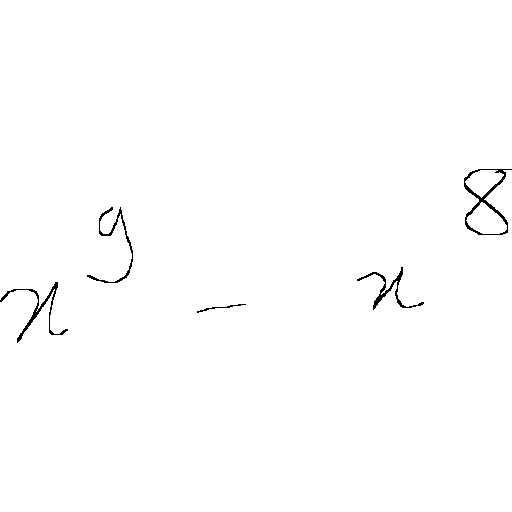 x^9 - x^8